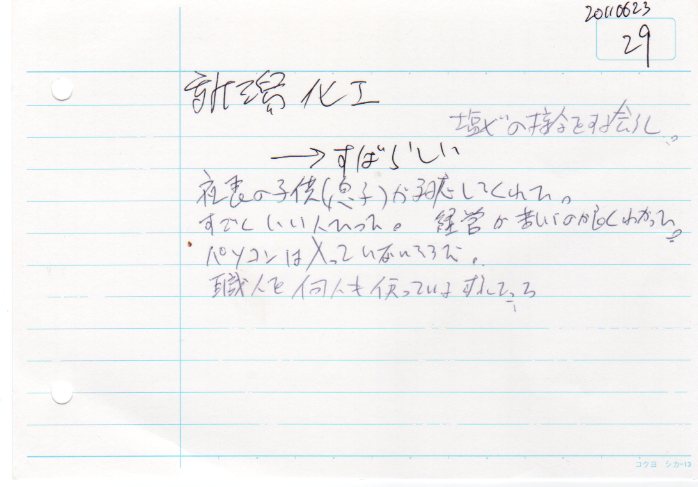 20110623
29
化工
塩ビの接合をする会社。
→すばらしい
社長の子供(息子)が対応してくれた。
すごくいい人だった。 経営が苦しいのがよくわかった。
パソコンは入っていないそうだ。
職人を何人も使っている
コクヨ シカ-13